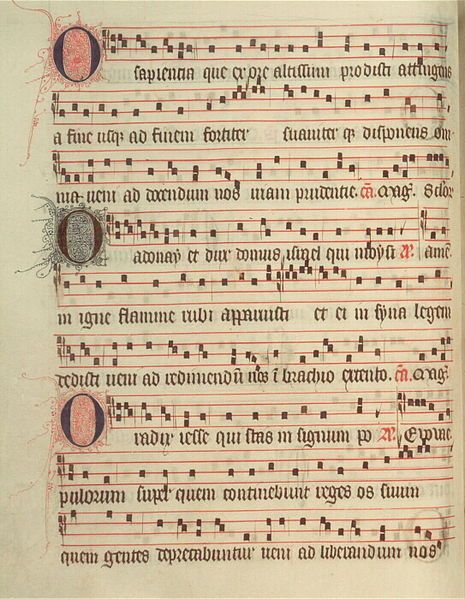 O sapientia que ex ore altissimi prodisti attingens
a fine usq; ad finem fortiter suaviter q; disponens om
nia veni ad docendum nos viam prudentie. Mag.
O adonay et dux domus israel qui moysi
in igne flamme rubi apparuisti et ei in syna legem
dedisti veni ad redimendū nos ī brachio extento. Mag.
O radix iesse qui stas in signum po
pulorum super quem continebunt reges os suum
quem gentes deprecabuntur veni ad liberandum nos